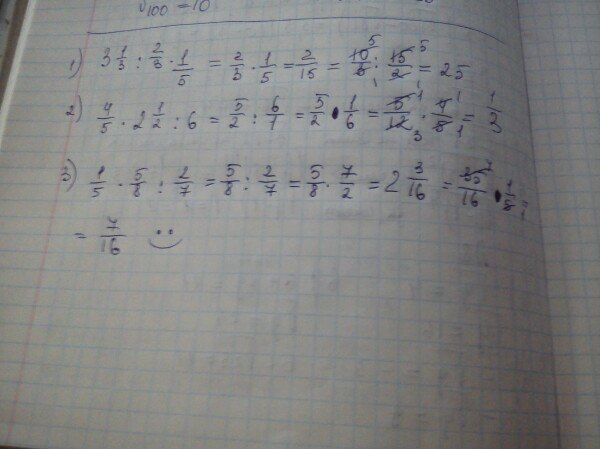 100 = 10
1) 3 1/3 : 2/3 · 1/5 = 2/3 · 1/5 = 2/15 = 10/3 : 15/2 = 25
2) 4/5 · 2 1/2 : 6 = 5/2 : 6/1 = 5/2 · 1/6 = 5/12 · 4/5 = 1/3
3) 1/5 · 5/8 : 2/7 = 5/8 : 2/7 = 5/8 · 7/2 = 2 3/16 = 35/16 · 1/5 =
= 7/16